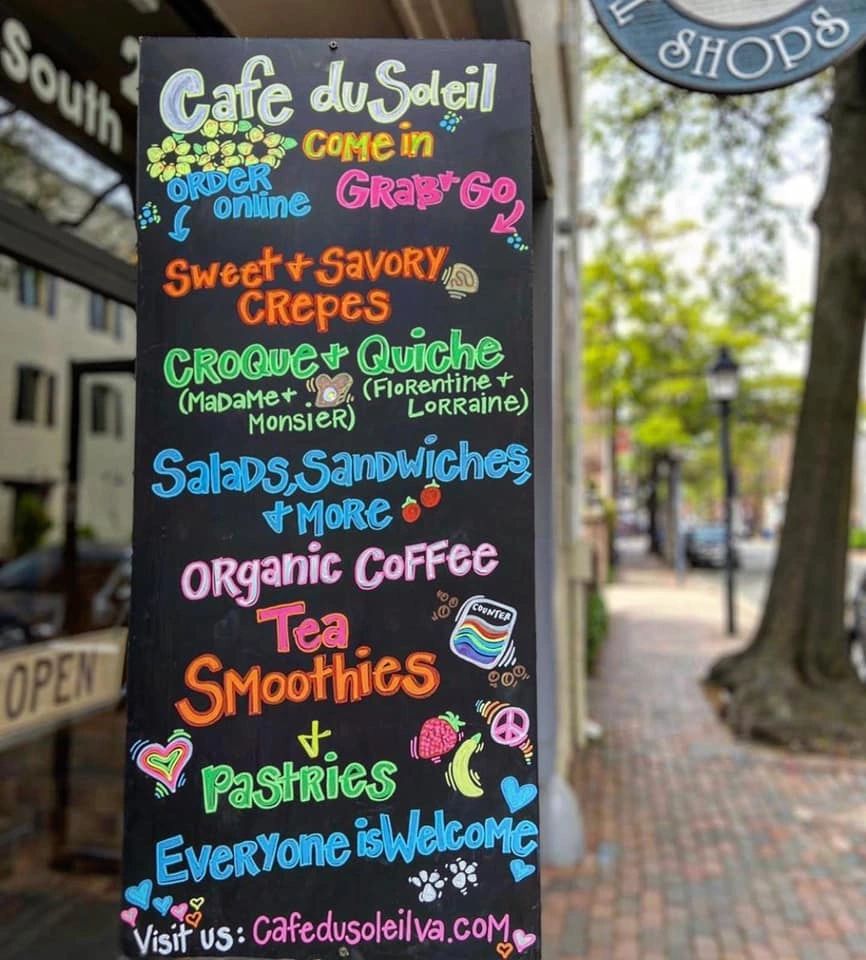 South
2
SHOPS
Cafe du Soleil
COME in
ORDER online
GRAB + GO
Sweet + SAVORY
CRepes
CROQUe + Quiche
(MaDaMe + Monsier) (Florentine + LORRaine)
SalaDs, SanDwiches,
+ MORe
ORganic CoFFee
COUNTER
Tea
SMoothies
+
PaStRies
OPEN
EveRYone is WelcoMe
Visit us: CafedusoleilVa.coM